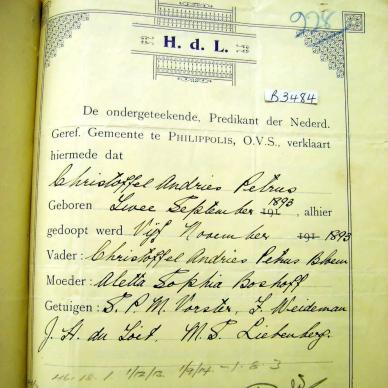 928
H. d. L.
B3484
De ondergeteekende, Predikant der Nederd.
Geref. Gemeente te PHILIPPOLIS, O.V.S., verklaart
hiermede dat
Christoffel Andries Petrus
Geboren Twee September 191 1893, alhier
gedoopt werd Vijf November 191 1893
Vader: Christoffel Andries Petrus Bloem
Moeder: Aletta Sophia Boshoff
Getuigen: S. P. M. Vorster, F. Weideman
J. H. du Toit. M. S. Liebenberg.